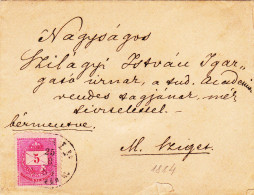 Nagyságos
Szilágyi István Igaz-
gató úrnak, a tud. Academia
rendes tagjának, mély
tisztelettel.
bérmentve.
M. Sziget.
1884
5